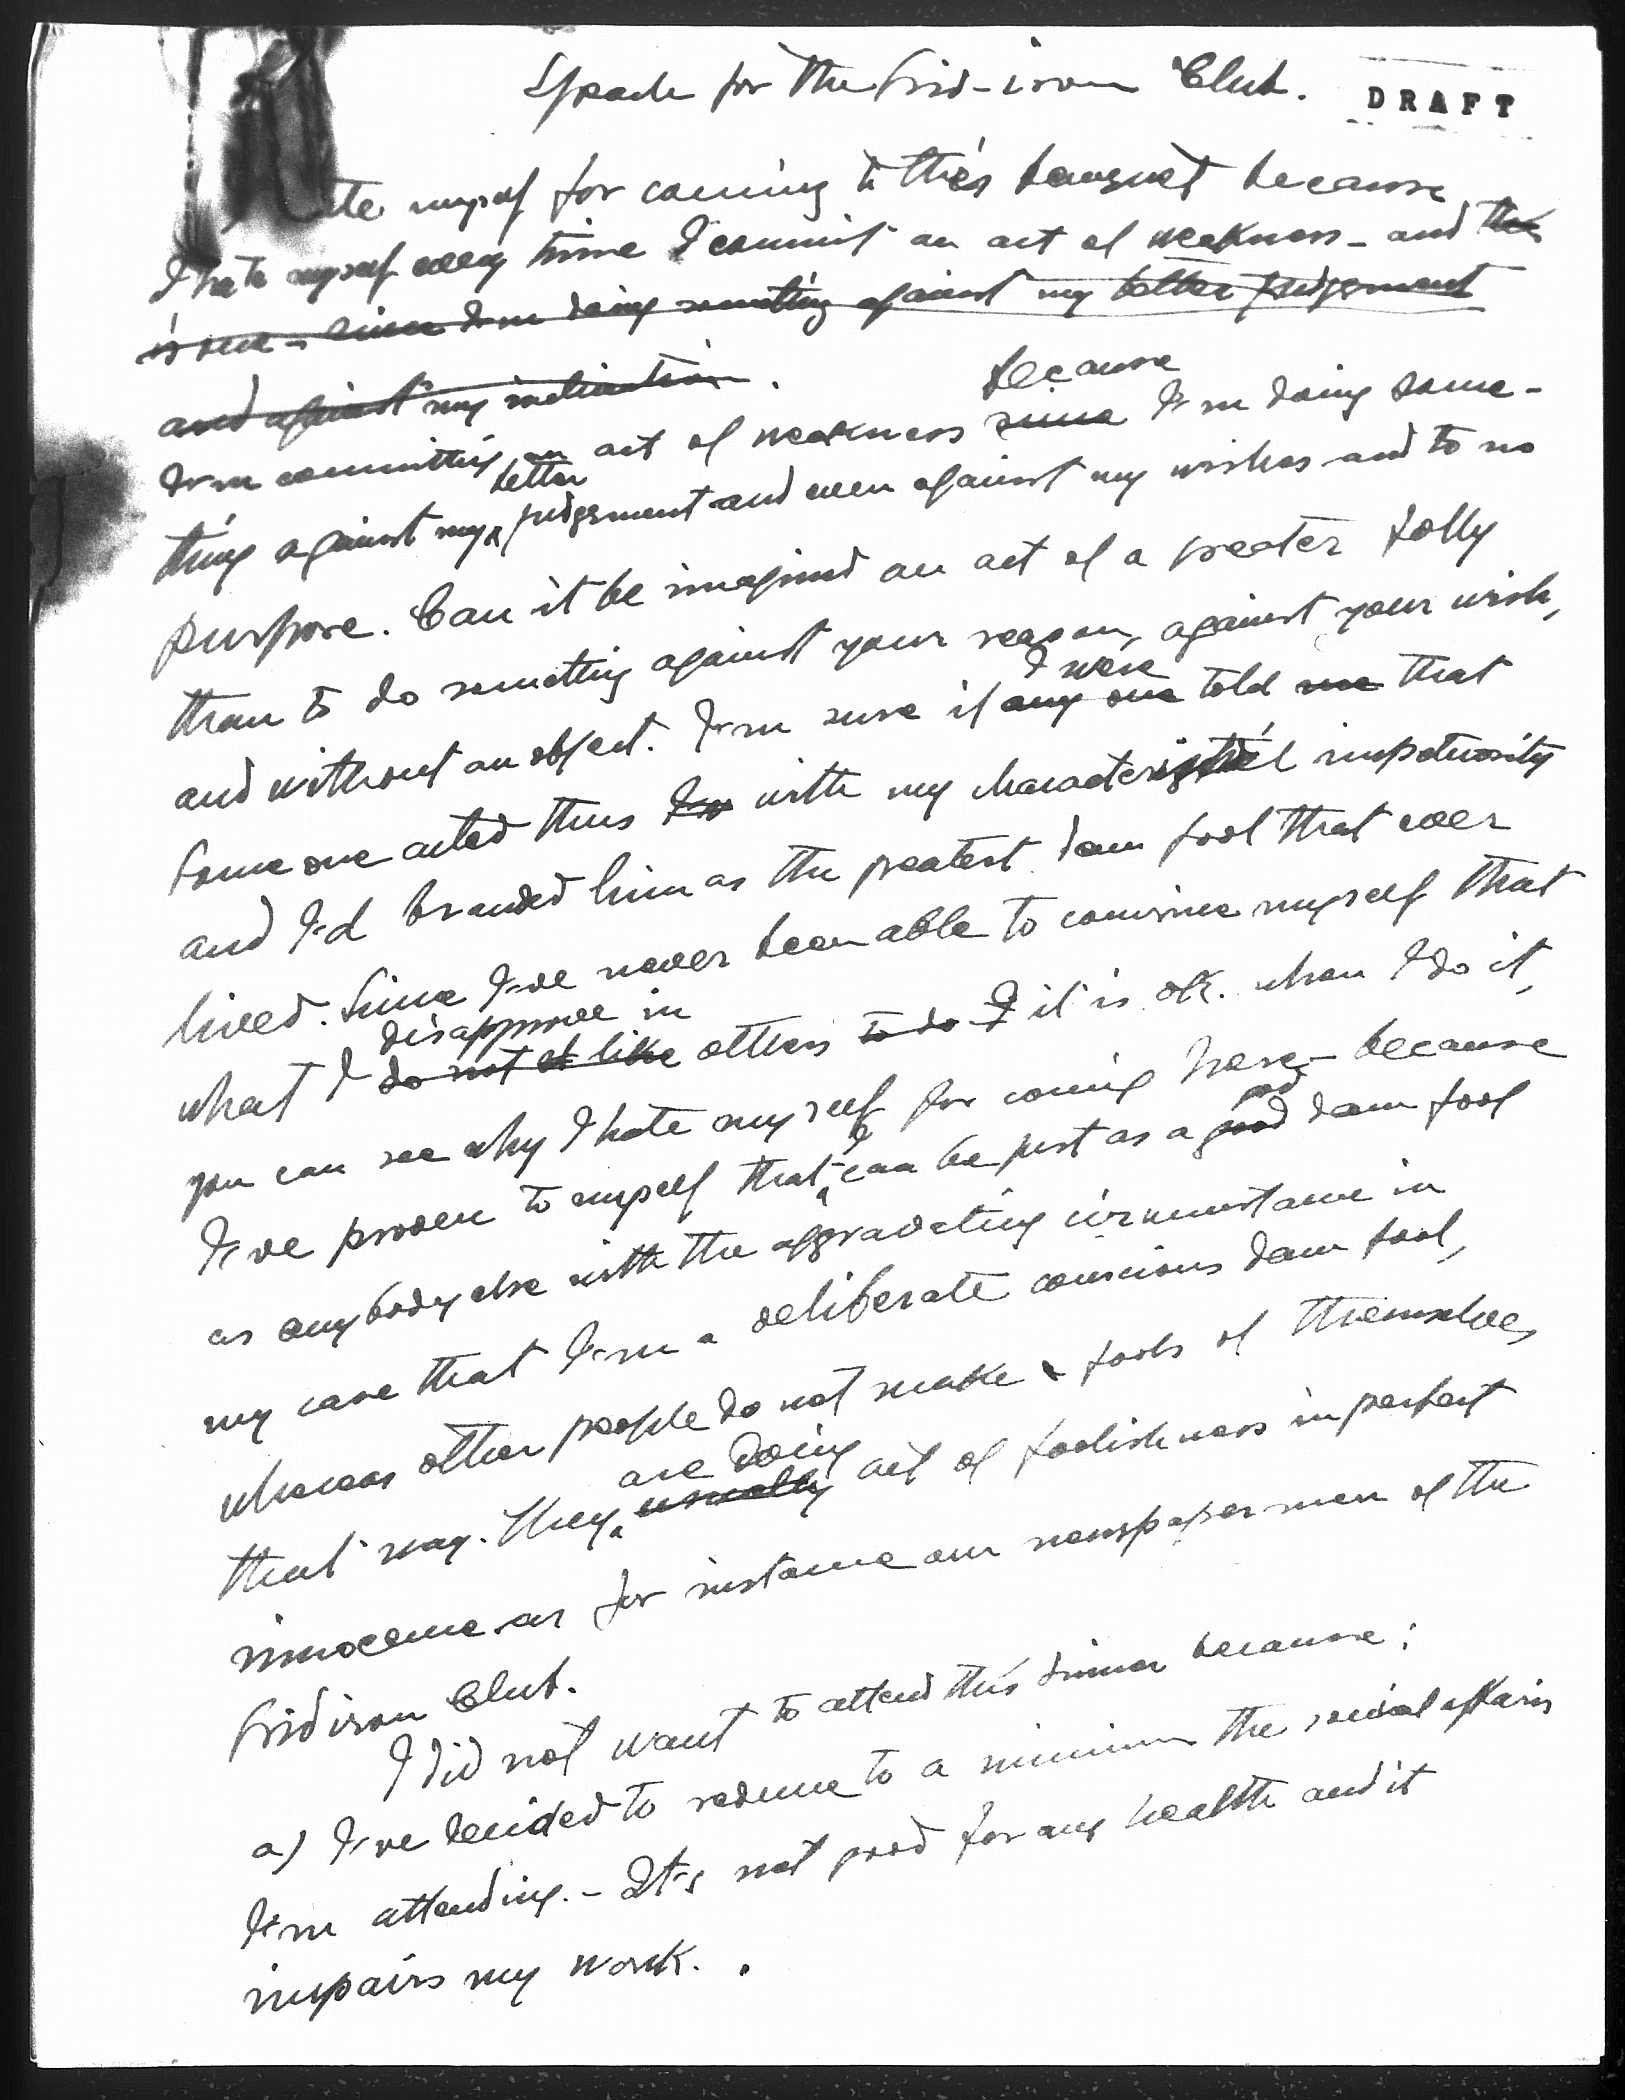 Speach for the Grid-iron Club.
DRAFT
myself for coming to this banquet because
I hate myself every time I commit an act of weakness - and this
is one - since I'm doing something against my better judgement
and against my inclination.
because
I'm committing an act of weakness since I'm doing some-
better
thing against my judgement and even against my wishes and to no
purpose. Can it be imagined an act of a greater folly
than to do something against your reason, against your wish,
I were
and without an object. I'm sure if any one told me that
some one acted thus I'd with my characteristical impetuosity
and I'd branded him as the greatest dam fool that ever
lived. Since I've never been able to convince myself that
disapprove in
what I do not like others to do I it is o.k. when I do it,
you can see why I hate myself for coming here - because
I good
I've proven to myself that can be just as a good dam fool
as anybody else with the aggravating circumstance in
my case that I'm a deliberate conscious dam fool,
whereas other people do not make a fools of themselves
are doing
that way. They usually act of foolishness in perfect
innocence as for instance our newspapermen of the
Gridiron Club.
I did not want to attend this dinner because:
a) I've decided to reduce to a minimum the social affairs
I'm attending. - It's not good for my health and it
impairs my work.